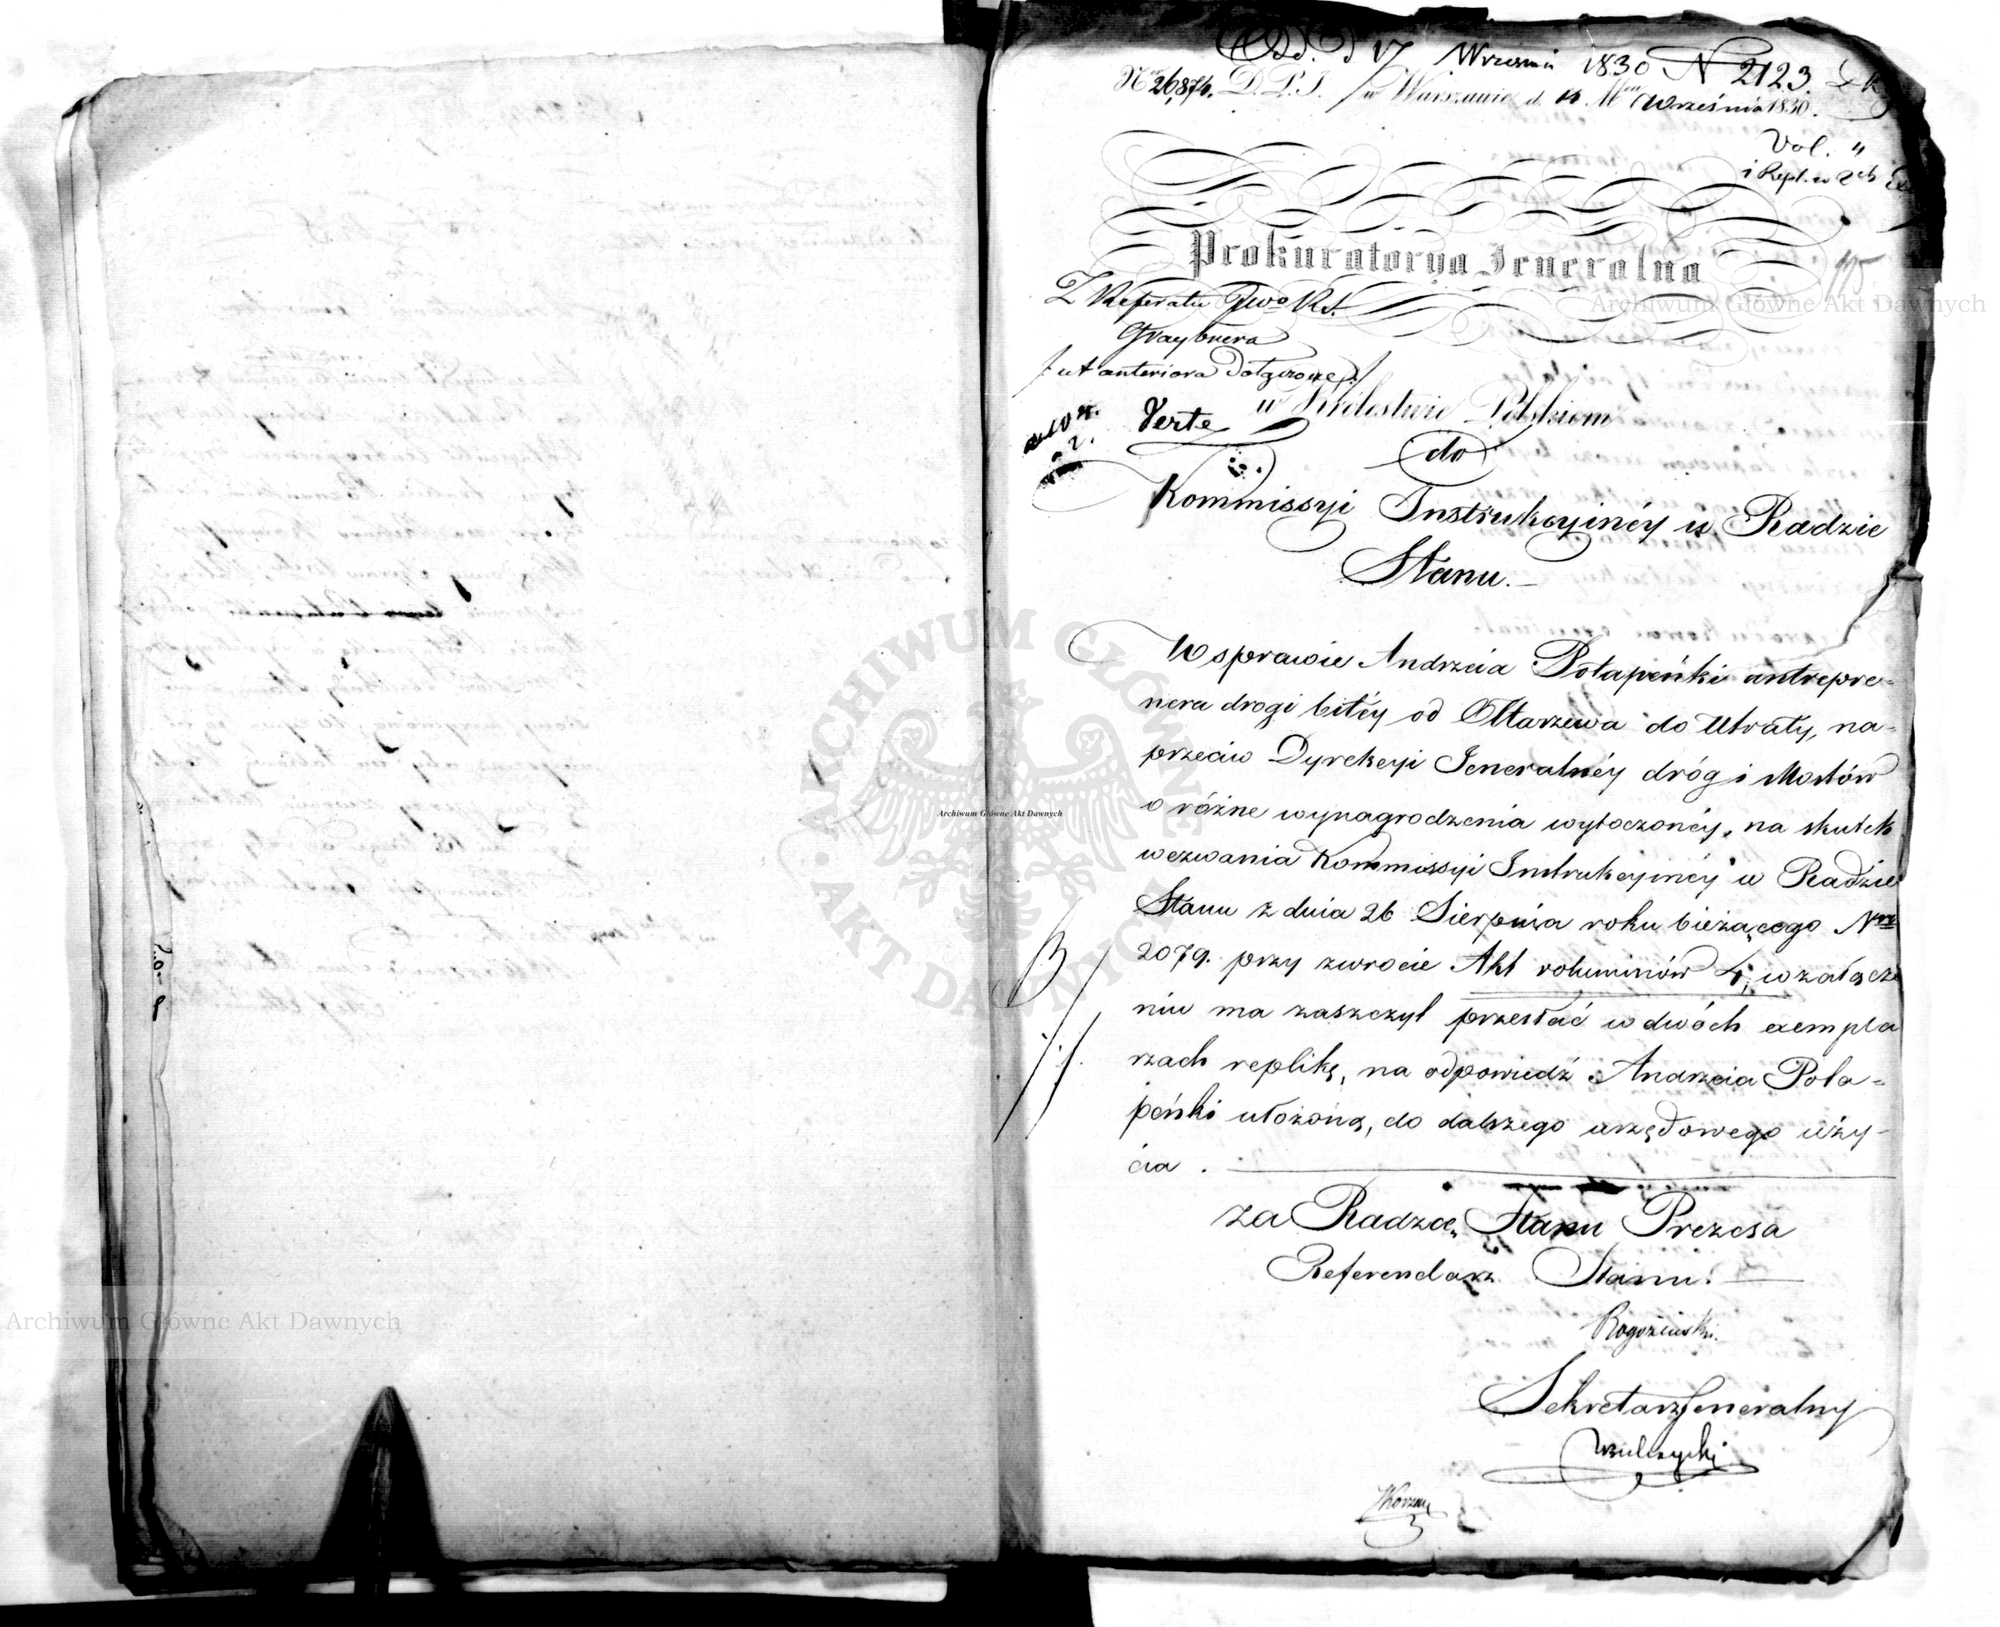 d 17 Wrzesnia 1830 N 2123.
Nro 26,874. D.P.J. w Warszawie d. 14 Mca Września 1830.
Vol. 4
i Repl. w 2ch
Prokuratorya Jeneralna
195
Z Referatu Jwo Rs.
Graybnera
/: ut anteriora dołączone :/
Verte
w Królestwie Polskiem
do
Kommissyi Instrukcyinéy w Radzie
Stanu.
W sprawie Andrzeia Potapeńki antrepre-
nera drogi bitéy od Ołtarzewa do Utraty, na-
przeciw Dyrekcyi Jeneralnéy dróg i Mostów
o różne wynagrodzenia wytoczonéy, na skutek
wezwania Kommissyi Instrukcyinéy w Radzie
Stanu z dnia 26 Sierpnia roku bieżącego Nro
2079. przy zwrocie Akt voluminów 4, w załącze
niu ma zaszczyt przesłać w dwóch exempla
rzach replikę, na odpowiedź Andrzeia Pota-
peńki ułożoną, do dalszego urzędowego uży-
cia.
za Radzcę Stanu Prezesa
Referendarz Stanu.
Rogoziński.
Sekretarz Jeneralny
Archiwum Główne Akt Dawnych
ARCHIWUM GŁÓWNE AKT DAWNYCH
Archiwum Główne Akt Dawnych
Archiwum Główne Akt Dawnych